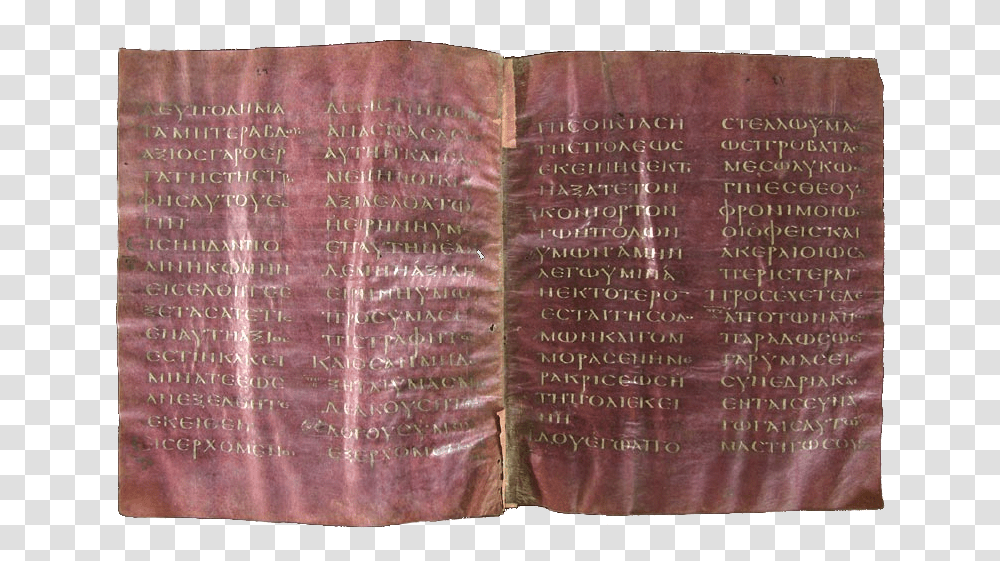 ΔΕΥΠΟΔΗΜΑ
ΤΑΜΗΤΕΡΑΒΔΟ
ΑΞΙΟϹΓΑΡΟΕΡ
ΓΑΤΗϹΤΗϹΤΡ
ΦΗϹΑΥΤΟΥΕϹ
ΤΙΝ
ΕΙϹΗΝΔΑΝΠΟ
ΛΙΝΗΚΩΜΗΝ
ΕΙϹΕΛΘΗΤΕΕ
ΞΕΤΑϹΑΤΕΤΙ
ΕΝΑΥΤΗΑΞΙΟ
ΕϹΤΙΝΚΑΚΕΙ
ΜΙΝΑΤΕΕΩϹ
ΑΝΕΞΕΛΘΗΤΕ
ΕΚΕΙΘΕΝ
ΕΙϹΕΡΧΟΜΕΝΟ
ΑΥΤΗΝΚΑΙ
ΑΞΙΑΕΛΘΑΤΩ
ΗΕΙΡΗΝΗΥΜ
ΕΠΑΥΤΗΝΕΑ
ΔΕΜΗΗΑΞΙΑΗ
ΕΙΡΗΝΗΥΜΩ
ΠΡΟϹΥΜΑϹΕ
ΠΙϹΤΡΑΦΗΤ
ΚΑΙΟϹΑΝΜΗΔΕ
ΞΗΤΑΙΥΜΑϹΜ
ΔΕΑΚΟΥϹΗΤ
ΛΟΓΟΥϹΥΜΩ
ΕΞΕΡΧΟΜΕ
ΤΗϹΟΙΚΙΑϹΗ
ΤΗϹΠΟΛΕΩϹ
ΕΚΕΙΝΗϹΕΚΤΙ
ΝΑΞΑΤΕΤΟΝ
ΚΟΝΙΟΡΤΟΝ
ΤΩΝΠΟΔΩΝ
ΥΜΩΝΑΜΗΝ
ΛΕΓΩΥΜΙΝΑ
ΝΕΚΤΟΤΕΡΟ
ΕϹΤΑΙΤΗϹΟΔΟ
ΜΩΝΚΑΙΓΟΜ
ΜΟΡΑϹΕΝΗΜΕ
ΡΑΚΡΙϹΕΩϹΗ
ΤΗΠΟΛΙΕΚΕΙ
ΝΗ
ΙΔΟΥΕΓΩΑΠΟ
ϹΤΕΛΛΩΥΜΑ
ΩϹΠΡΟΒΑΤΑ
ΜΕϹΩΛΥΚΩ
ΓΙΝΕϹΘΕΟΥ
ΦΡΟΝΙΜΟΙΩ
ΟΙΟΦΕΙϹΚΑΙ
ΑΚΕΡΑΙΟΙΩϹ
ΠΕΡΙϹΤΕΡΑΙ
ΠΡΟϹΕΧΕΤΕΔΕ
ΑΠΟΤΩΝΑΝ
ΠΑΡΑΔΩϹΟΥϹΙ
ΓΑΡΥΜΑϹΕΙ
ϹΥΝΕΔΡΙΑΚΑ
ΕΝΤΑΙϹϹΥΝΑ
ΓΩΓΑΙϹΑΥΤΩ
ΜΑϹΤΙΓΩϹΟΥ